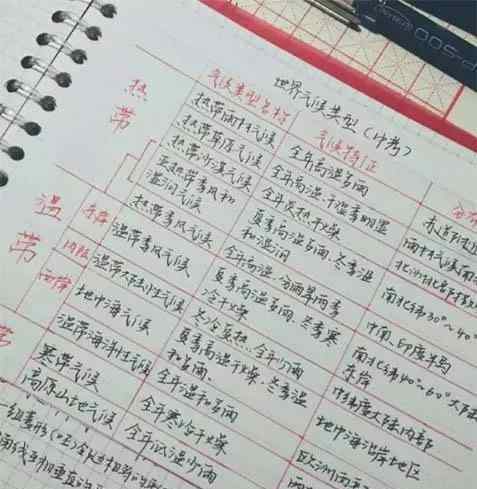 世界气候类型(中考)
气候类型名称 气候特征
热带
热带雨林气候 全年高温多雨
热带草原气候 全年高温、干湿季明显
热带沙漠气候 全年炎热干燥
亚热带季风和湿润气候 夏季高温多雨、冬季温和湿润 南北纬30°~40°
热带季风气候 全年高温、分两旱两季 中南、印度半岛
温带
东岸 温带季风气候 夏季高温多雨、冬季寒冷干燥 南北纬40°~60°大陆东岸
内陆 温带大陆性气候 冬冷夏热、全年少雨 中纬度大陆内部
西岸 地中海气候 夏季高温干燥、冬季温和多雨 地中海沿岸地区
温带海洋性气候 全年温和多雨
寒带气候 全年寒冷干燥
高原山地气候 全年低温少雨